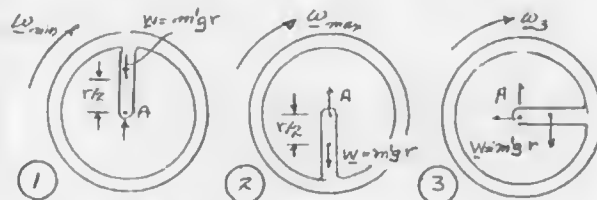 ω min
W = m'gr
r/2
A
1
ω max
A
r/2
W = m'gr
2
ω 3
A
W = m'gr
3